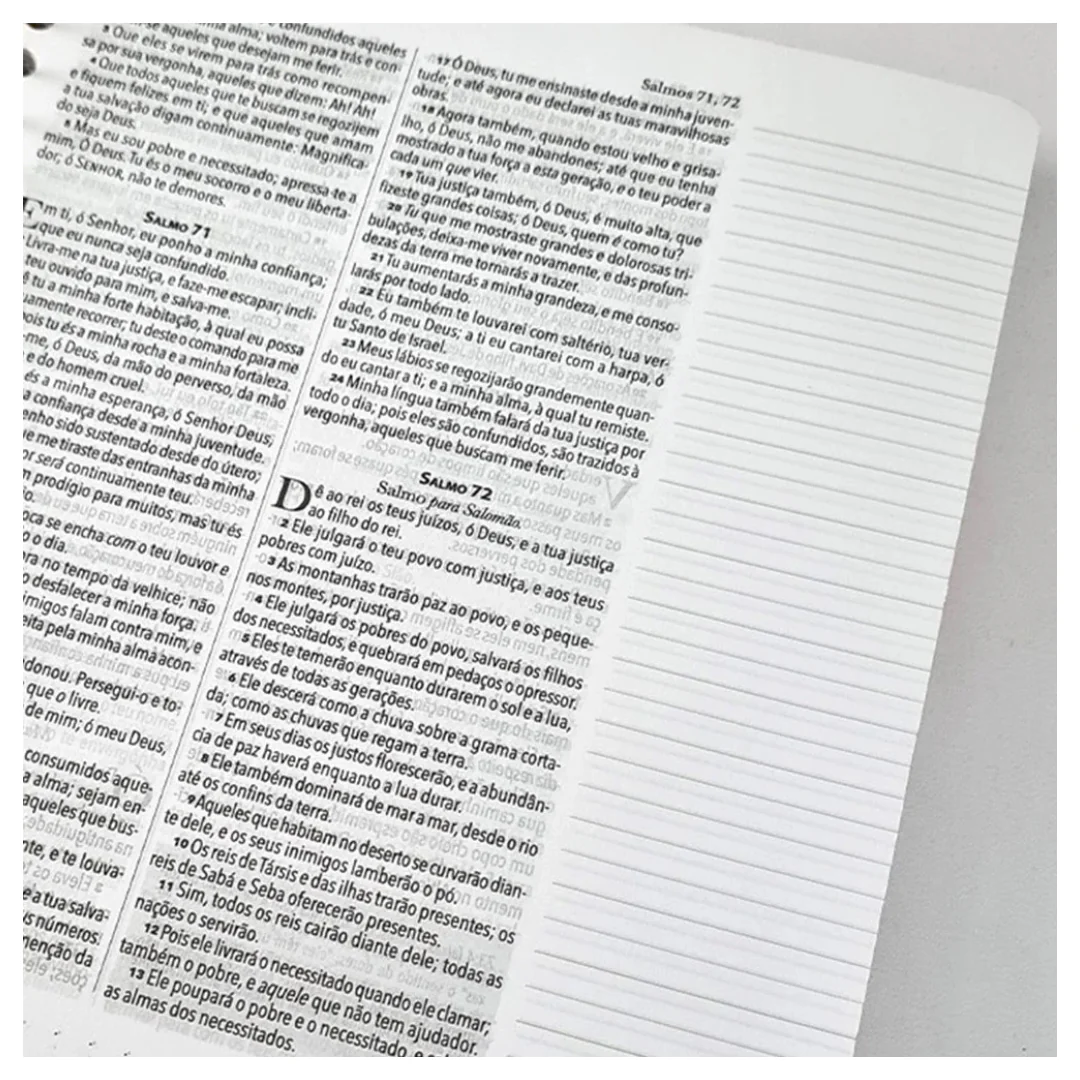 confundidos aqueles
alma; voltem para trás e con
se aqueles que desejam me ferir.
³ Que eles se virem para trás como recompen-
sa por sua vergonha, aqueles que dizem: Ah! Ah!
⁴ Que todos aqueles que te buscam se regozijem
e fiquem felizes em ti; e que aqueles que amam
a tua salvação digam continuamente: Magnifica-
do seja Deus.
⁵ Mas eu sou pobre e necessitado; apressa-te a
mim, Ó Deus. Tu és o meu socorro e o meu liberta-
dor; ó SENHOR, não te demores.
SALMO 71
Em ti, ó Senhor, eu ponho a minha confiança;
que eu nunca seja confundido.
Livra-me na tua justiça, e faze-me escapar; incli-
teu ouvido para mim, e salva-me.
tu a minha forte habitação, à qual eu possa
uamente recorrer; tu deste o comando para me
ois tu és a minha rocha e a minha fortaleza.
-me, ó Deus, da mão do perverso, da mão
e do homem cruel.
és a minha esperança, ó Senhor Deus;
a confiança desde a minha juventude.
enho sido sustentado desde do útero;
e me tiraste das entranhas da minha
or será continuamente teu.
prodígio para muitos, mas tu és
oca se encha com o teu louvor e
o dia.
ra no tempo da velhice; não
desfalecer a minha força.
imigos falam contra mim, e
eita pela minha alma acon-
donou. Persegui-o e to-
que o livre.
de mim; ó meu Deus,
consumidos aque-
a alma; sejam en-
aqueles que bus-
te, e te louva-
e a tua salva-
s números.
enção da
Salmos 71, 72
17 Ó Deus, tu me ensinaste desde a minha juven-
tude; e até agora eu declarei as tuas maravilhosas
obras.
18 Agora também, quando estou velho e grisa-
lho, ó Deus, não me abandones; até que eu tenha
mostrado a tua força a esta geração, e o teu poder a
cada um que vier.
19 Tua justiça também, ó Deus, é muito alta, que
fizeste grandes coisas; ó Deus, quem é como tu?
20 Tu que me mostraste grandes e dolorosas tri-
bulações, deixa-me viver novamente, e das profun-
dezas da terra me tornarás a trazer.
21 Tu aumentarás a minha grandeza, e me conso-
larás por todo lado.
22 Eu também te louvarei com saltério, tua ver-
dade, ó meu Deus; a ti eu cantarei com a harpa, ó
tu Santo de Israel.
23 Meus lábios se regozijarão grandemente quan-
do eu cantar a ti; e a minha alma, à qual tu remiste.
24 Minha língua também falará da tua justiça por
todo o dia; pois eles são confundidos, são trazidos à
vergonha, aqueles que buscam me ferir.
SALMO 72
Salmo para Salomão.
Dê ao rei os teus juízos, ó Deus, e a tua justiça
ao filho do rei.
2 Ele julgará o teu povo com justiça, e aos teus
pobres com juízo.
3 As montanhas trarão paz ao povo, e os peque-
nos montes, por justiça.
4 Ele julgará os pobres do povo, salvará os filhos
dos necessitados, e quebrará em pedaços o opressor.
5 Eles te temerão enquanto durarem o sol e a lua,
através de todas as gerações.
6 Ele descerá como a chuva sobre a grama corta-
da; como as chuvas que regam a terra.
7 Em seus dias os justos florescerão, e a abundân-
cia de paz haverá enquanto a lua durar.
8 Ele também dominará de mar a mar, desde o rio
até os confins da terra.
9 Aqueles que habitam no deserto se curvarão dian-
te dele, e os seus inimigos lamberão o pó.
10 Os reis de Társis e das ilhas trarão presentes; os
reis de Sabá e Seba oferecerão presentes.
11 Sim, todos os reis cairão diante dele; todas as
nações o servirão.
12 Pois ele livrará o necessitado quando ele clamar;
também o pobre, e aquele que não tem ajudador.
13 Ele poupará o pobre e o necessitado, e
as almas dos necessitados.